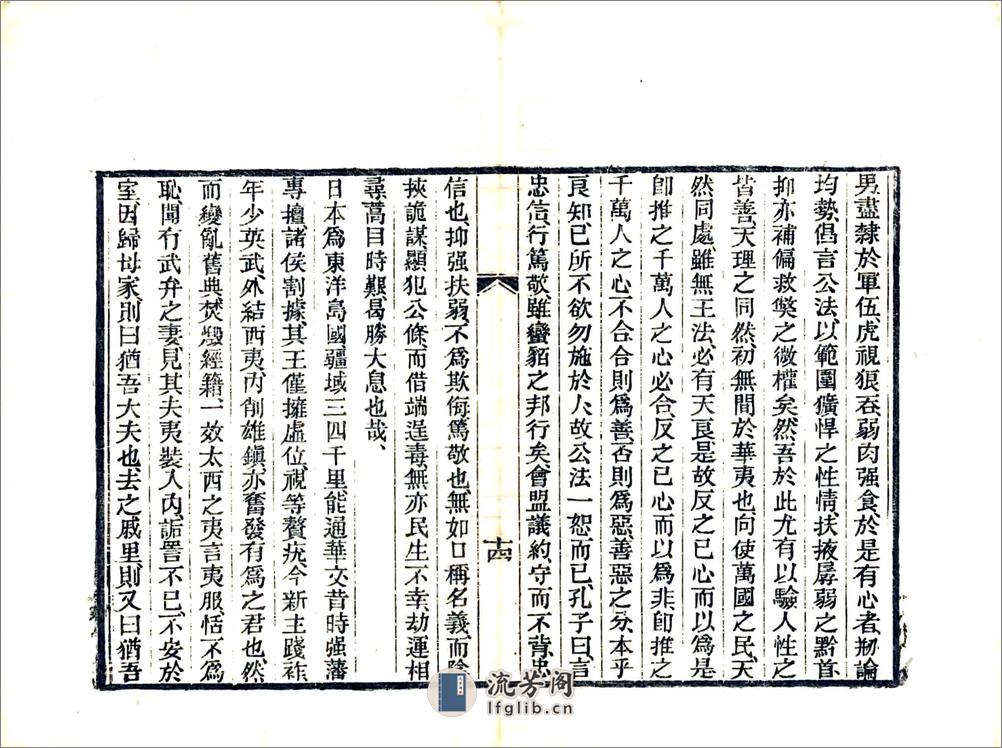 男盡隸於軍伍、虎視狼吞、弱肉强食、於是有心者、剏論
均勢、倡言公法、以範圍獷悍之性情、扶掖孱弱之黔首、
抑亦補偏救獘之微權矣、然吾於此尤有以驗人性之
皆善、天理之同然、初無間於華夷也、向使萬國之民、天
然同處、雖無王法、必有天良、是故反之己心而以爲是、
卽推之千萬人之心必合、反之己心而以爲非、卽推之
千萬人之心不合、合則爲善、否則爲惡、善惡之分、本乎
良知、己所不欲、勿施於人、故公法一恕而已、孔子曰、言
忠信、行篤敬、雖蠻貊之邦行矣、會盟議約、守而不背、忠
十四
信也、抑强扶弱、不爲欺侮、篤敬也、無如口稱名義、而陰
挾詭謀、顯犯公條、而借端逞毒、無亦民生不幸、劫運相
尋、蒿目時艱、曷勝大息也哉、
日本爲東洋島國、疆域三四千里、能通華文、昔時强藩
專擅、諸侯割據、其王僅擁虛位、視等贅疣、今新主踐祚、
年少英武、外結西夷、內削雄鎮、亦奮發有爲之君也、然
而變亂舊典、焚燬經籍、一效太西之夷言夷服、恬不爲
恥、聞有武弁之妻、見其夫夷裝入內、詬詈不已、不安於
室、因歸母家、則曰猶吾大夫也、去之戚里、則又曰猶吾
流芳阁
lfglib.cn